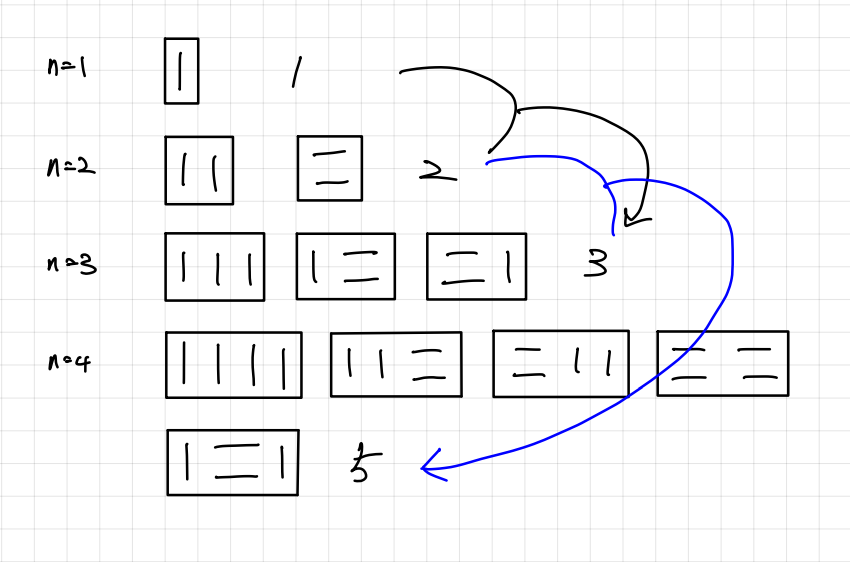 n=1 1
n=2 2
n=3 3
n=4
5